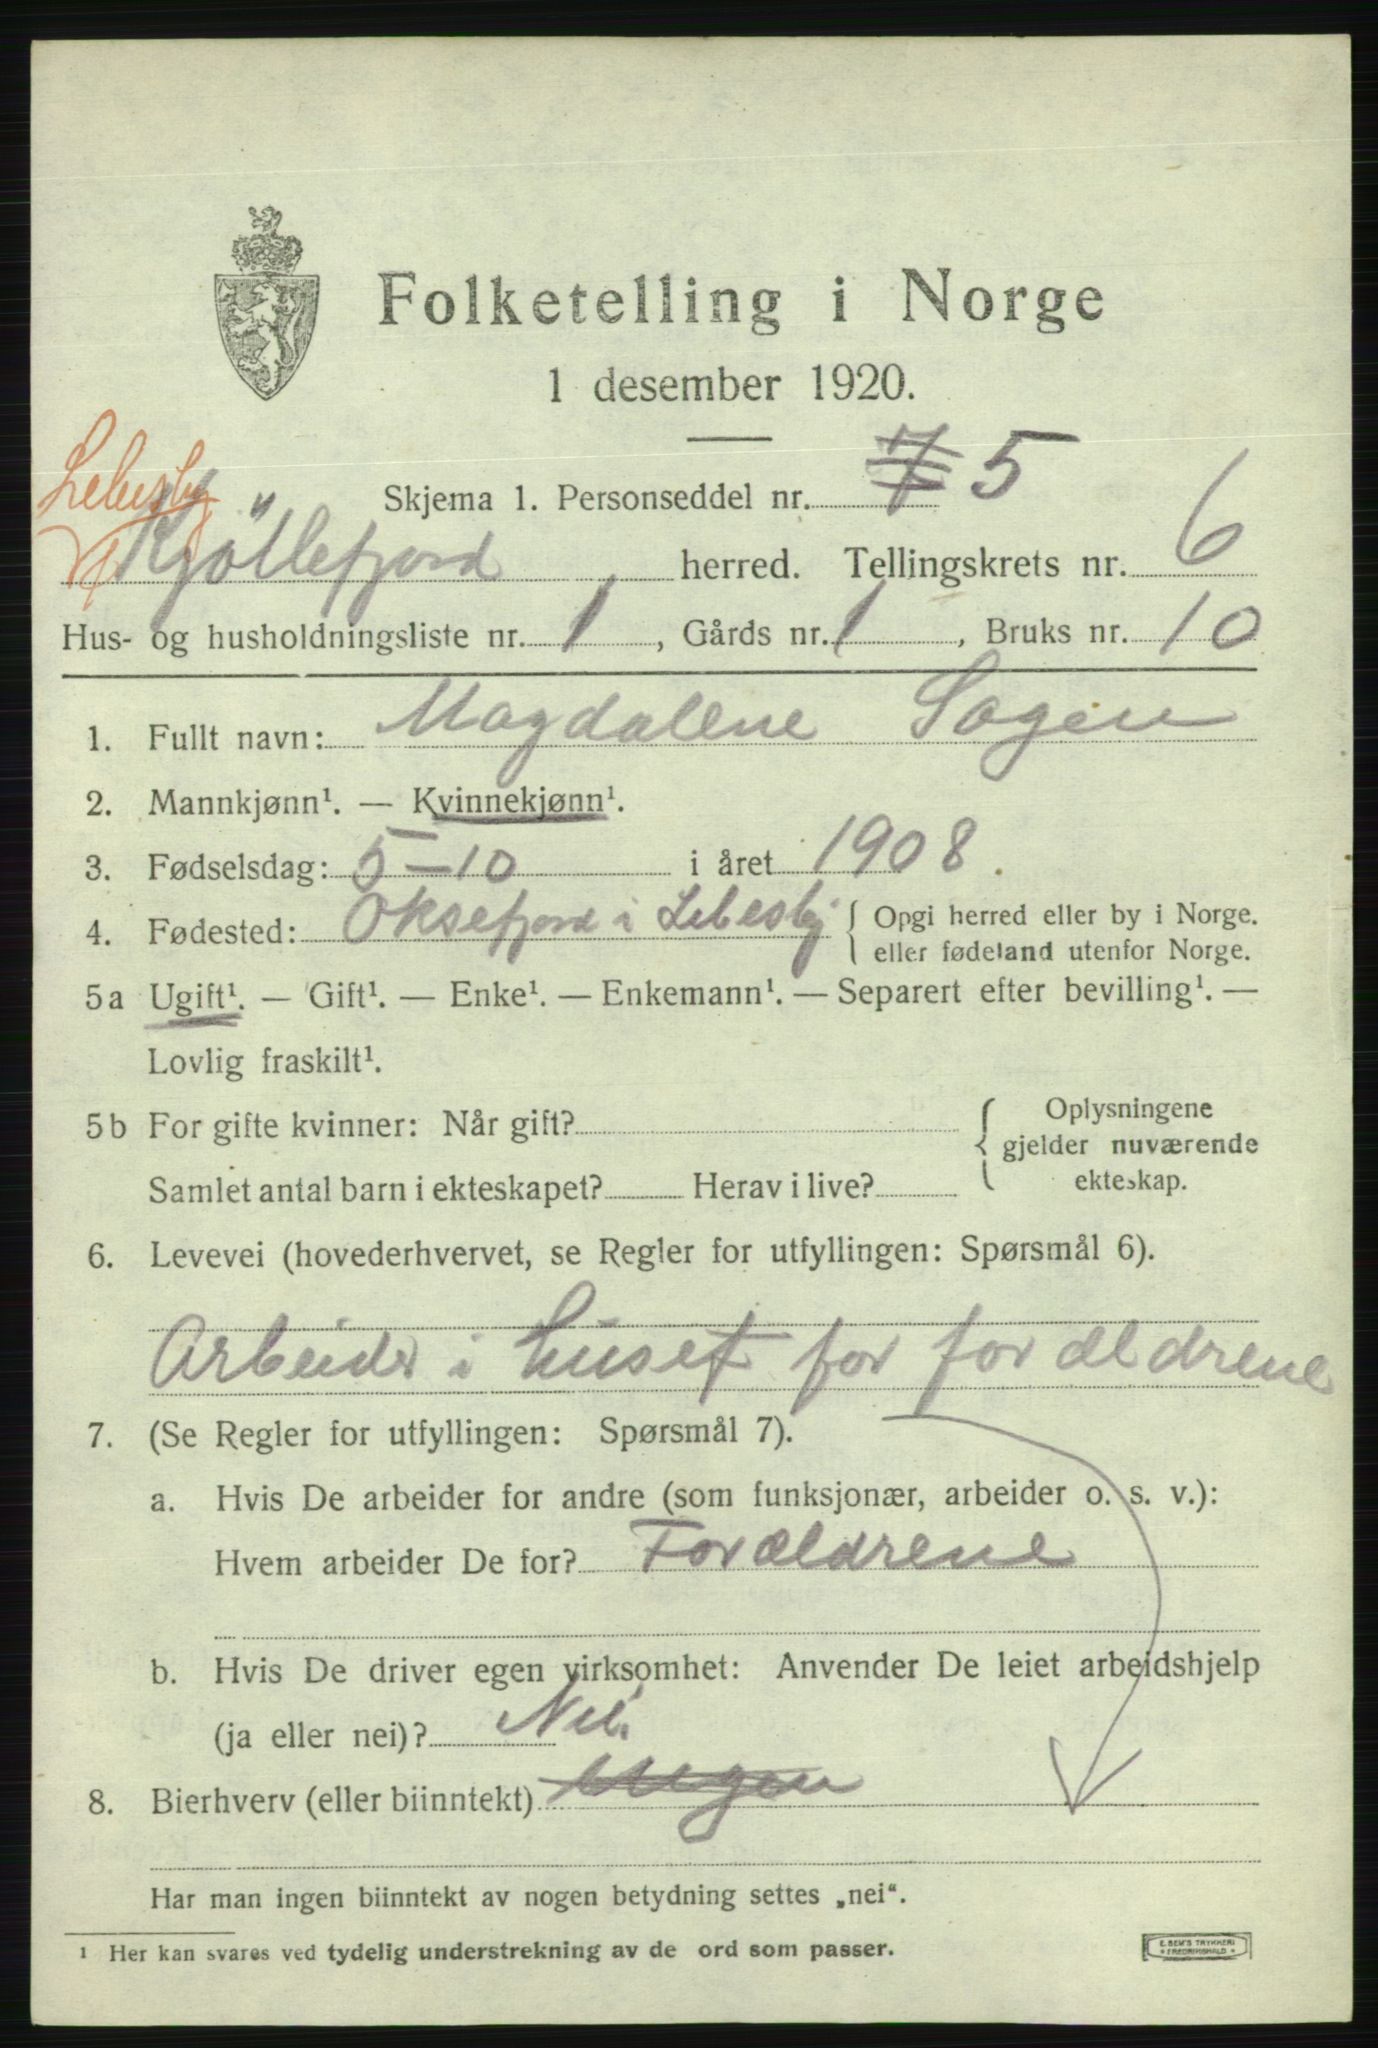 Folketelling i Norge
1 desember 1920.
Skjema 1. Personseddel nr. 7 5
Lebesby
Kjöllefjord herred. Tellingskrets nr. 6
Hus- og husholdningsliste nr. 1, Gårds nr. 1, Bruks nr. 10
1. Fullt navn: Magdalene Sagen
2. Mannkjønn¹. — Kvinnekjønn¹.
3. Fødselsdag: 5-10 i året 1908.
4. Fødested: Oksefjord i Lebesby { Opgi herred eller by i Norge.
eller fødeland utenfor Norge.
5a Ugift¹. — Gift¹. — Enke¹. — Enkemann¹. — Separert efter bevilling¹. —
Lovlig fraskilt¹.
5b For gifte kvinner: Når gift? { Oplysningene
gjelder nuværende
Samlet antal barn i ekteskapet? Herav i live? ekteskap.
6. Levevei (hovederhvervet, se Regler for utfyllingen: Spørsmål 6).
Arbeider i huset for forældrene
7. (Se Regler for utfyllingen: Spørsmål 7).
a. Hvis De arbeider for andre (som funksjonær, arbeider o. s. v.):
Hvem arbeider De for? Forældrene
b. Hvis De driver egen virksomhet: Anvender De leiet arbeidshjelp
(ja eller nei)? Nei
8. Bierhverv (eller biinntekt) ingen
Har man ingen biinntekt av nogen betydning settes „nei“.
¹ Her kan svares ved tydelig understrekning av de ord som passer.
E. SEM'S TRYKKERI
FREDRIKSHALD